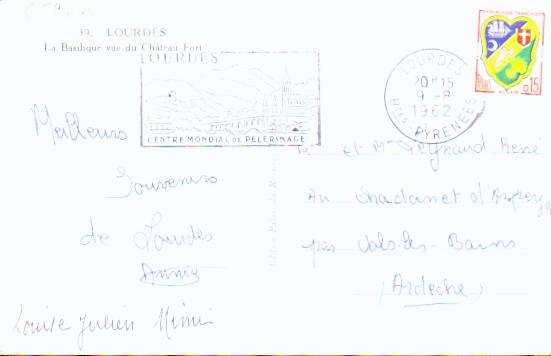 39. LOURDES
La Basilique vue du Château Fort
LOURDES
CENTRE MONDIAL DU PELERINAGE
LOURDES
20H15
9-8
1962
HTES PYRENEES
REPUBLIQUE FRANCAISE
POSTES
0,15
ALGER
Meilleurs
Souvenirs
de Lourdes
Annie
Louise Julien Mimi
Mr et Mme Peyrard René
Au Chadanet d'
par Vals-les-Bains
(Ardèche)